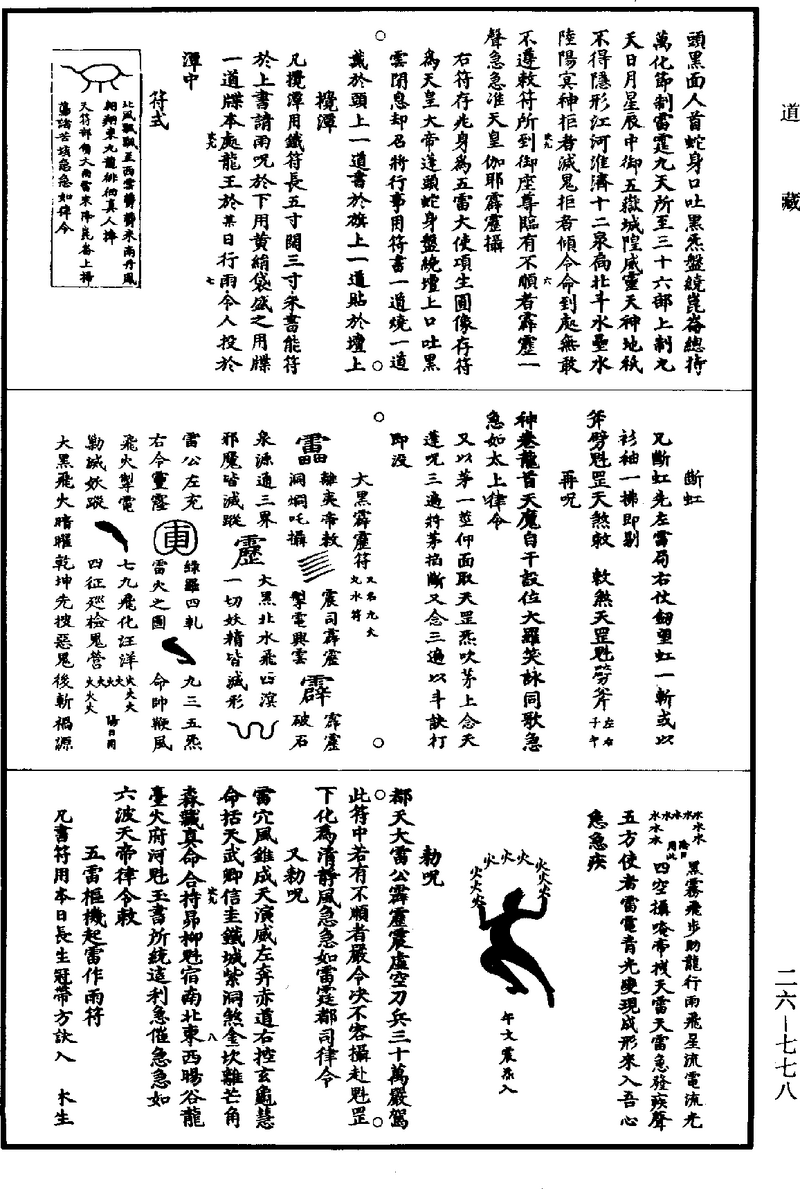 道藏
頭黑面人首蛇身口吐黑炁盤繞崑崙總持
萬化節制雷霆九天所至三十六部上制九
天日月星辰中御五嶽城隍威靈天神地祇
不得隱形江河淮濟十二泉扃北斗水壘水
陸陽冥神拒者滅鬼拒者傾令命到處無敢
不遵敕符所到御座尊臨有不順者霹靂一
聲急急准天皇伽耶霹靂攝
右符存兆身為五雷大使項生圓像存符
為天皇大帝蓬頭蛇身盤繞壇上口吐黑
雲閉息却名將行事用符書一道燒一道
戴於頭上一道書於旗上一道貼於壇上
攪潭
凡攪潭用鐵符長五寸闊三寸朱書能符
於上書請雨呪於下用黃絹袋盛之用牒
一道牒本處龍王於某日行雨令人投於
潭中
符式
北風飄飄至西雲鬱鬱來南丹鳳
朝翔東九龍徘徊真人捧
天符部衞大雨當來降崑崙上掃
蕩諸苦謨急急如律令
斷虹
凡斷虹先左雷局右仗劒望虹一斬或以
衫袖一拂即剔
斧劈魁罡天煞敕 敕煞天罡魁劈斧左右子午
再呪
神卷龍首天魔自干設位大羅笑詠同歌急
急如太上律令
又以茅一莖仰面取天罡炁吹茅上念天
蓬呪三遍將茅掐斷又念三遍以斗訣打
即没
大黑霹靂符又名九火九水符
離夷帝敕 震司霹靂 霹靂
雷 洞炯吒攝 掣電興雲 霹 破石
泉源通三界 大黑北水飛四溟
邪魔皆滅蹤 靂 一切妖精皆滅形
雷公左充 綠羅四軋 九三五炁
右令靈霆 雷火之圖 命帥鞭風
飛火掣電 七九飛化汪洋 火火火
勦滅妖蹤 四征巡檢鬼營 火火火火火火火
大黑飛火晴曜乾坤先捉惡鬼後斬禍源
水水水水水水水水 黑霧飛步助龍行雨飛星流電流光
四空攝唵帝栈天雷天雷急發疾聲
五方使者雷電音光變現成形來入吾心
急急疾
火火火火火火火火火火
午文震炁入
勅呪
都天大雷公霹靂震虛空刀兵三十萬嚴駕
此符中若有不順者嚴令决不容攝赴魁罡
下化為清靜風急急如雷霆都司律令
又勅呪
雷穴風錐成天演威左奔赤道右控玄龜慧
命括天武卿信圭鐵城紫洞煞金坎離芒角
森藏真命合持昴柳魁宿南北東西暘谷龍
臺火府河魁玉書所統這利急催急急如
六波天帝律令敕
五雷樞機起雷作雨符
凡書符用本日長生冠帶方訣入 木生
二六—七七八